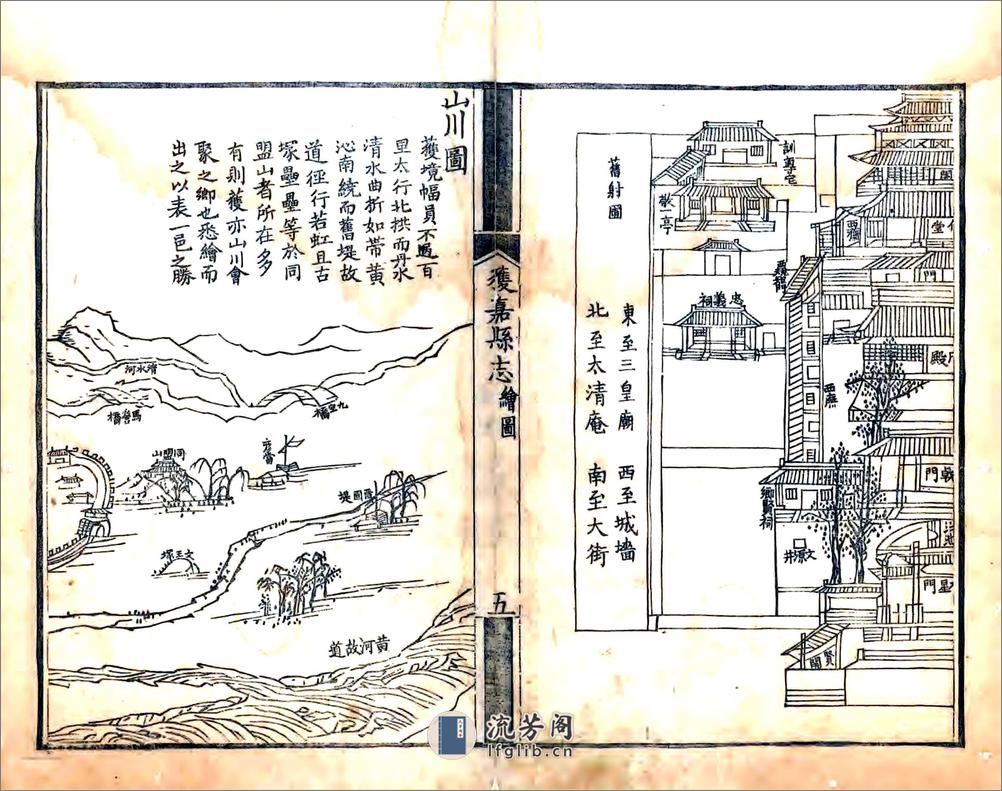 閣
堂
殿
戟門
池
星門
西齋
西廡
訓導宅
敬一亭
忠義祠
鄉賢祠
文源井
賢關
舊射圃
東至三皇廟 西至城墻
北至太清庵 南至大街
獲嘉縣志繪圖
五
山川圖
獲境幅員不過百
里太行北拱而丹水
清水曲折如帶黃
沁南繞而舊堤故
道徑行若虹且古
塚壘壘等於同
盟山者所在多
有則獲亦山川會
聚之鄉也悉繪而
出之以表一邑之勝
清水河
馬營橋
同盟山
黃河故道
流芳阁
lfglib.cn